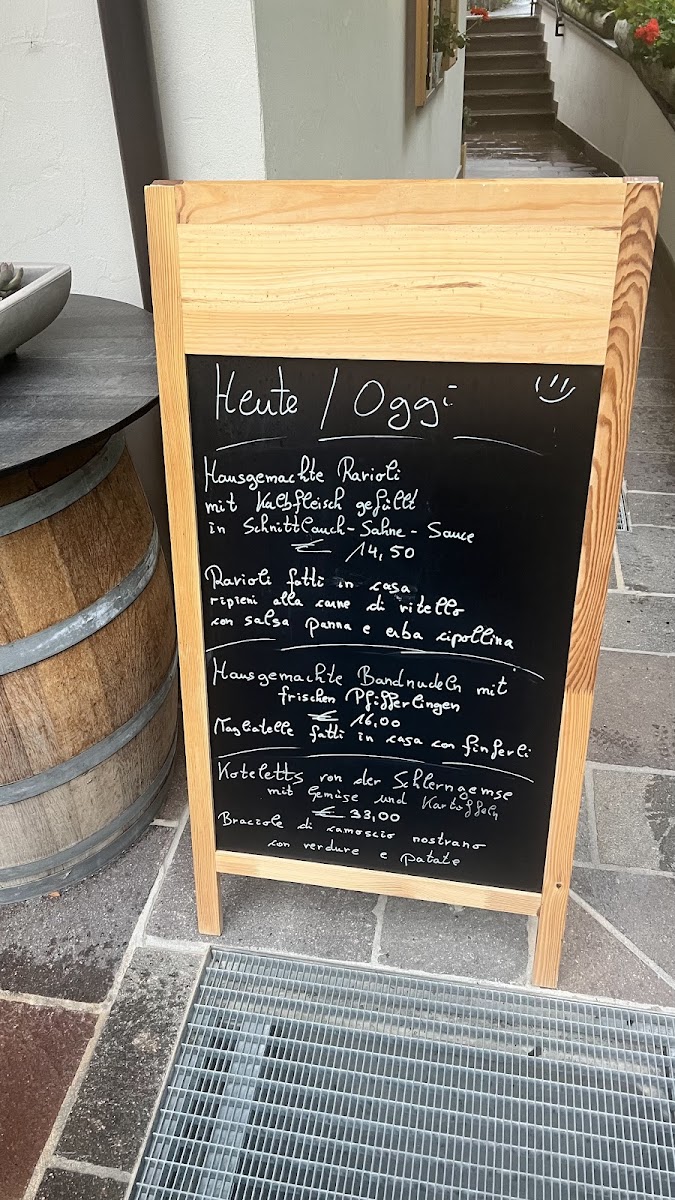 Heute / Oggi
Hausgemachte Ravioli
mit Kalbfleisch gefüllt
in Schnittlauch-Sahne-Sauce
€ 14,50
Ravioli fatti in casa
ripieni alla carne di vitello
con salsa panna e erba cipollina
Hausgemachte Bandnudeln mit
frischen Pfifferlingen
€ 16,00
Tagliatelle fatti in casa con finferli
Koteletts von der Schlerngemse
mit Gemüse und Kartoffeln
€ 33,00
Braciole di camoscio nostrano
con verdure e patate